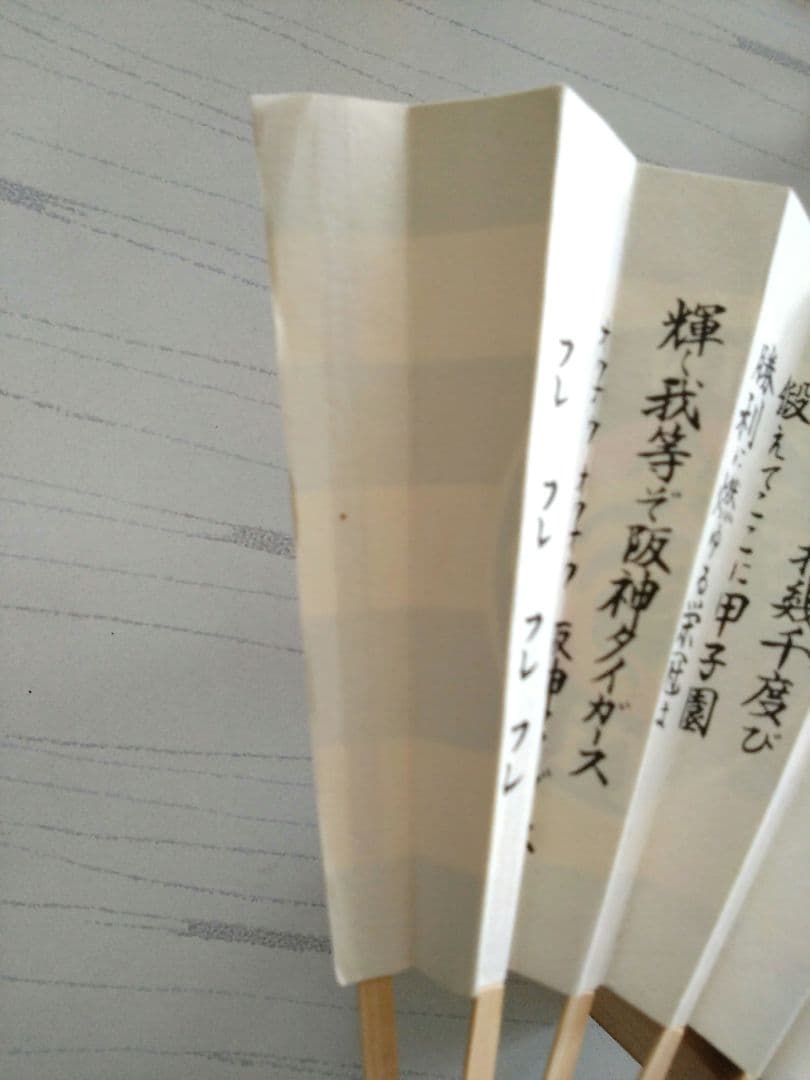 幾千度び
鍛えてここに甲子園
勝利に燃ゆる栄冠は
輝く我等ぞ阪神タイガース
オウオウ オウオウ 阪神
フレ フレ フレ フレ